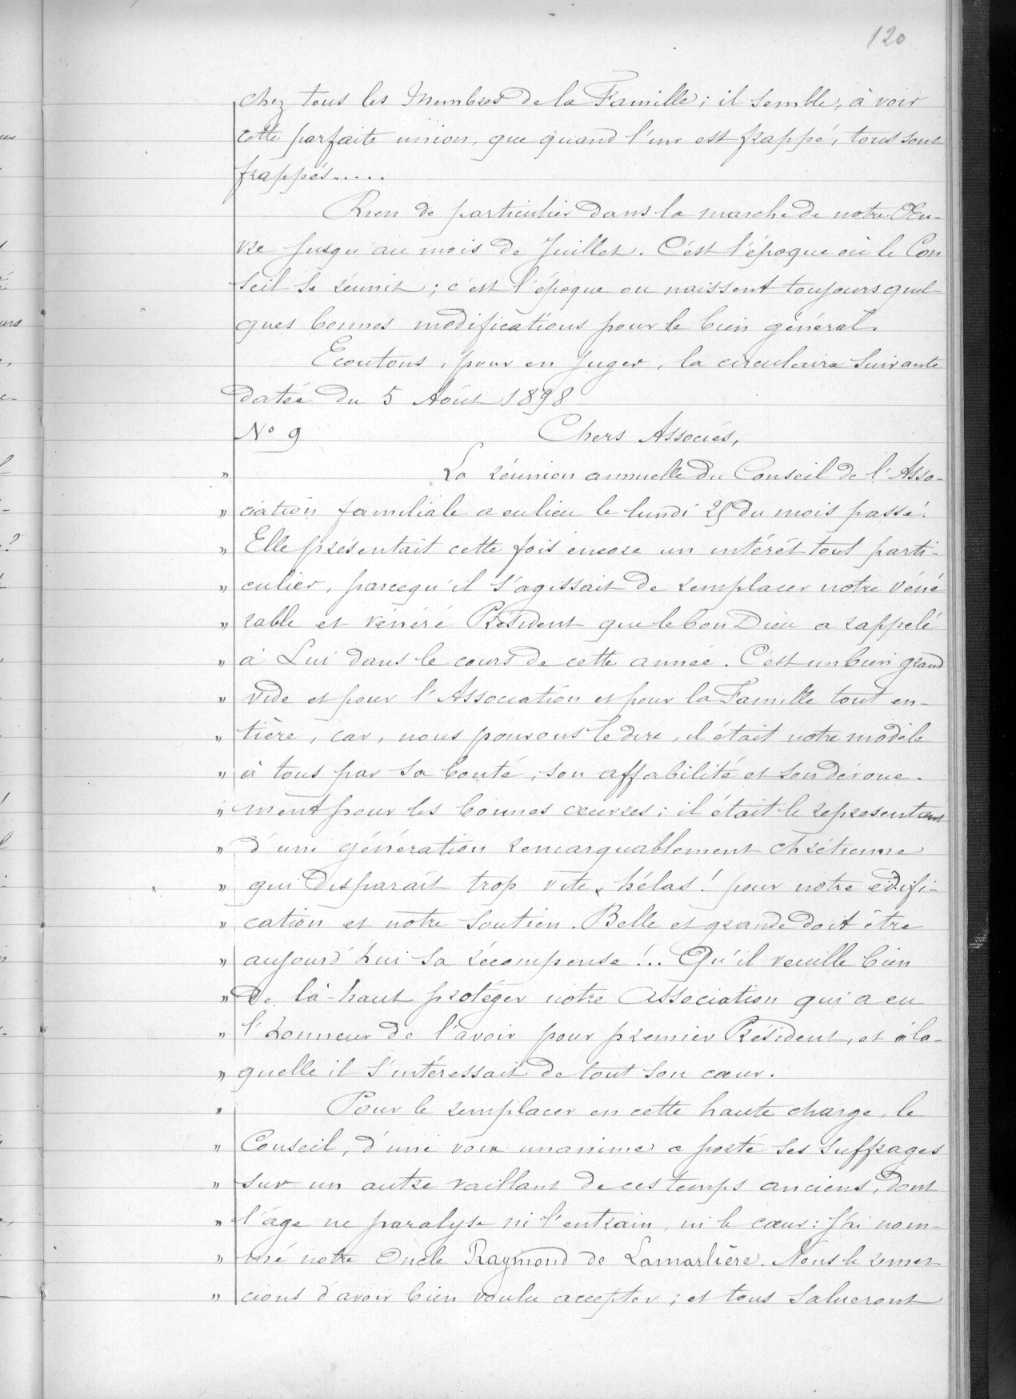 120
chez tous les Membres de la Famille ; il semble, à voir
cette parfaite union, que quand l'un est frappé, tous sont
frappés.....
Rien de particulier dans la marche de notre Œu-
vre jusqu'au mois de Juillet. C'est l'époque où le Con
seil se réunit ; c'est l'époque ou naissent toujours quel-
ques bonnes modifications pour le bien général.
Ecoutons, pour en juger, la circulaire suivante
datée du 5 Août 1898
N° 9 Chers Associés,
" La réunion annuelle du Conseil de l'Asso-
" ciation familiale a eu lieu le lundi 25 du mois passé.
" Elle présentait cette fois encore un intérêt tout parti-
" culier, parcequ'il s'agissait de remplacer notre véné
" rable et vénéré Président que le bon Dieu a rappelé
" à Lui dans le cours de cette année. C'est un bien grand
" vide et pour l'Association et pour la Famille tout en-
" tière, car, nous pouvons le dire, il était notre modèle
" à tous par sa bonté, son affabilité et son dévoue-
" ment pour les bonnes œuvres ; il était le représentant
" d'une génération remarquablement chrétienne
" qui disparaît trop vite, hélas ! pour notre édifi-
" cation et notre soutien. Belle et grande doit être
" aujourd'hui sa récompense !.. Qu'il veuille bien
" de là-haut protéger notre Association qui a eu
" l'honneur de l'avoir pour premier Président, et à la-
" quelle il s'intéressait de tout son cœur.
" Pour le remplacer en cette haute charge, le
" Conseil, d'une voix unanime a porté ses suffrages
" sur un autre vaillant de ces temps anciens, dont
" l'âge ne paralyse ni l'entrain, ni le cœur : J'ai nom-
" mé notre Oncle Raymond de Lamarlière. Nous le remer
" cions d'avoir bien voulu accepter ; et tous salueront